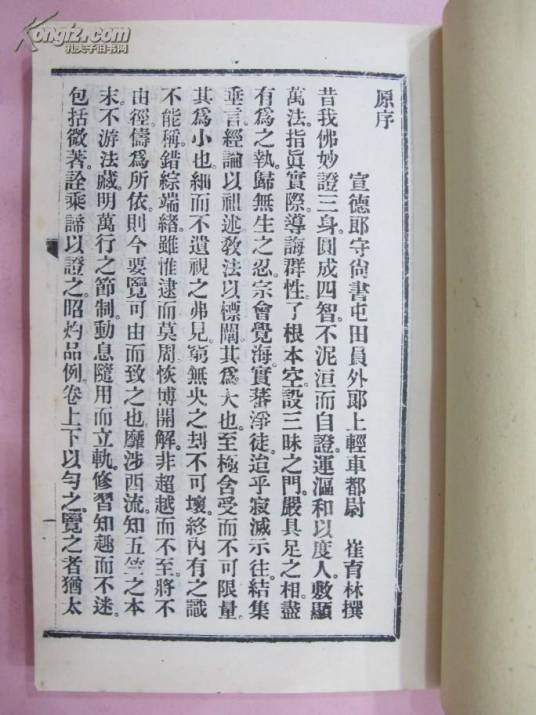 Kongfz.com
孔夫子旧书网
原序
宣德郎守尙書屯田員外郎上輕車都尉 崔育林撰
昔我佛妙證三身圓成四智不泥洹而自證運漚和以度人敷顯
萬法指眞實際導誨群性了根本空設三昧之門嚴具足之相盡
有爲之執歸無生之忍宗會覺海實蕃淨徒迨乎寂滅示往結集
垂言經論以祖述敎法以標闡其爲大也至極含受而不可限量
其爲小也細而不遺視之弗見窮無央之刦不可壞終內有之識
不能稱錯綜端緒雖惟逮而莫周恢博開解非超越而不至將不
由徑儔爲所依則今要覽可由而致之也靡涉西流知五竺之本
末不游法藏明萬行之節制動息隨用而立軌修習知趣而不迷
包括微著詮乘諦以證之昭灼品例卷上下以勻之覽之者猶太
一